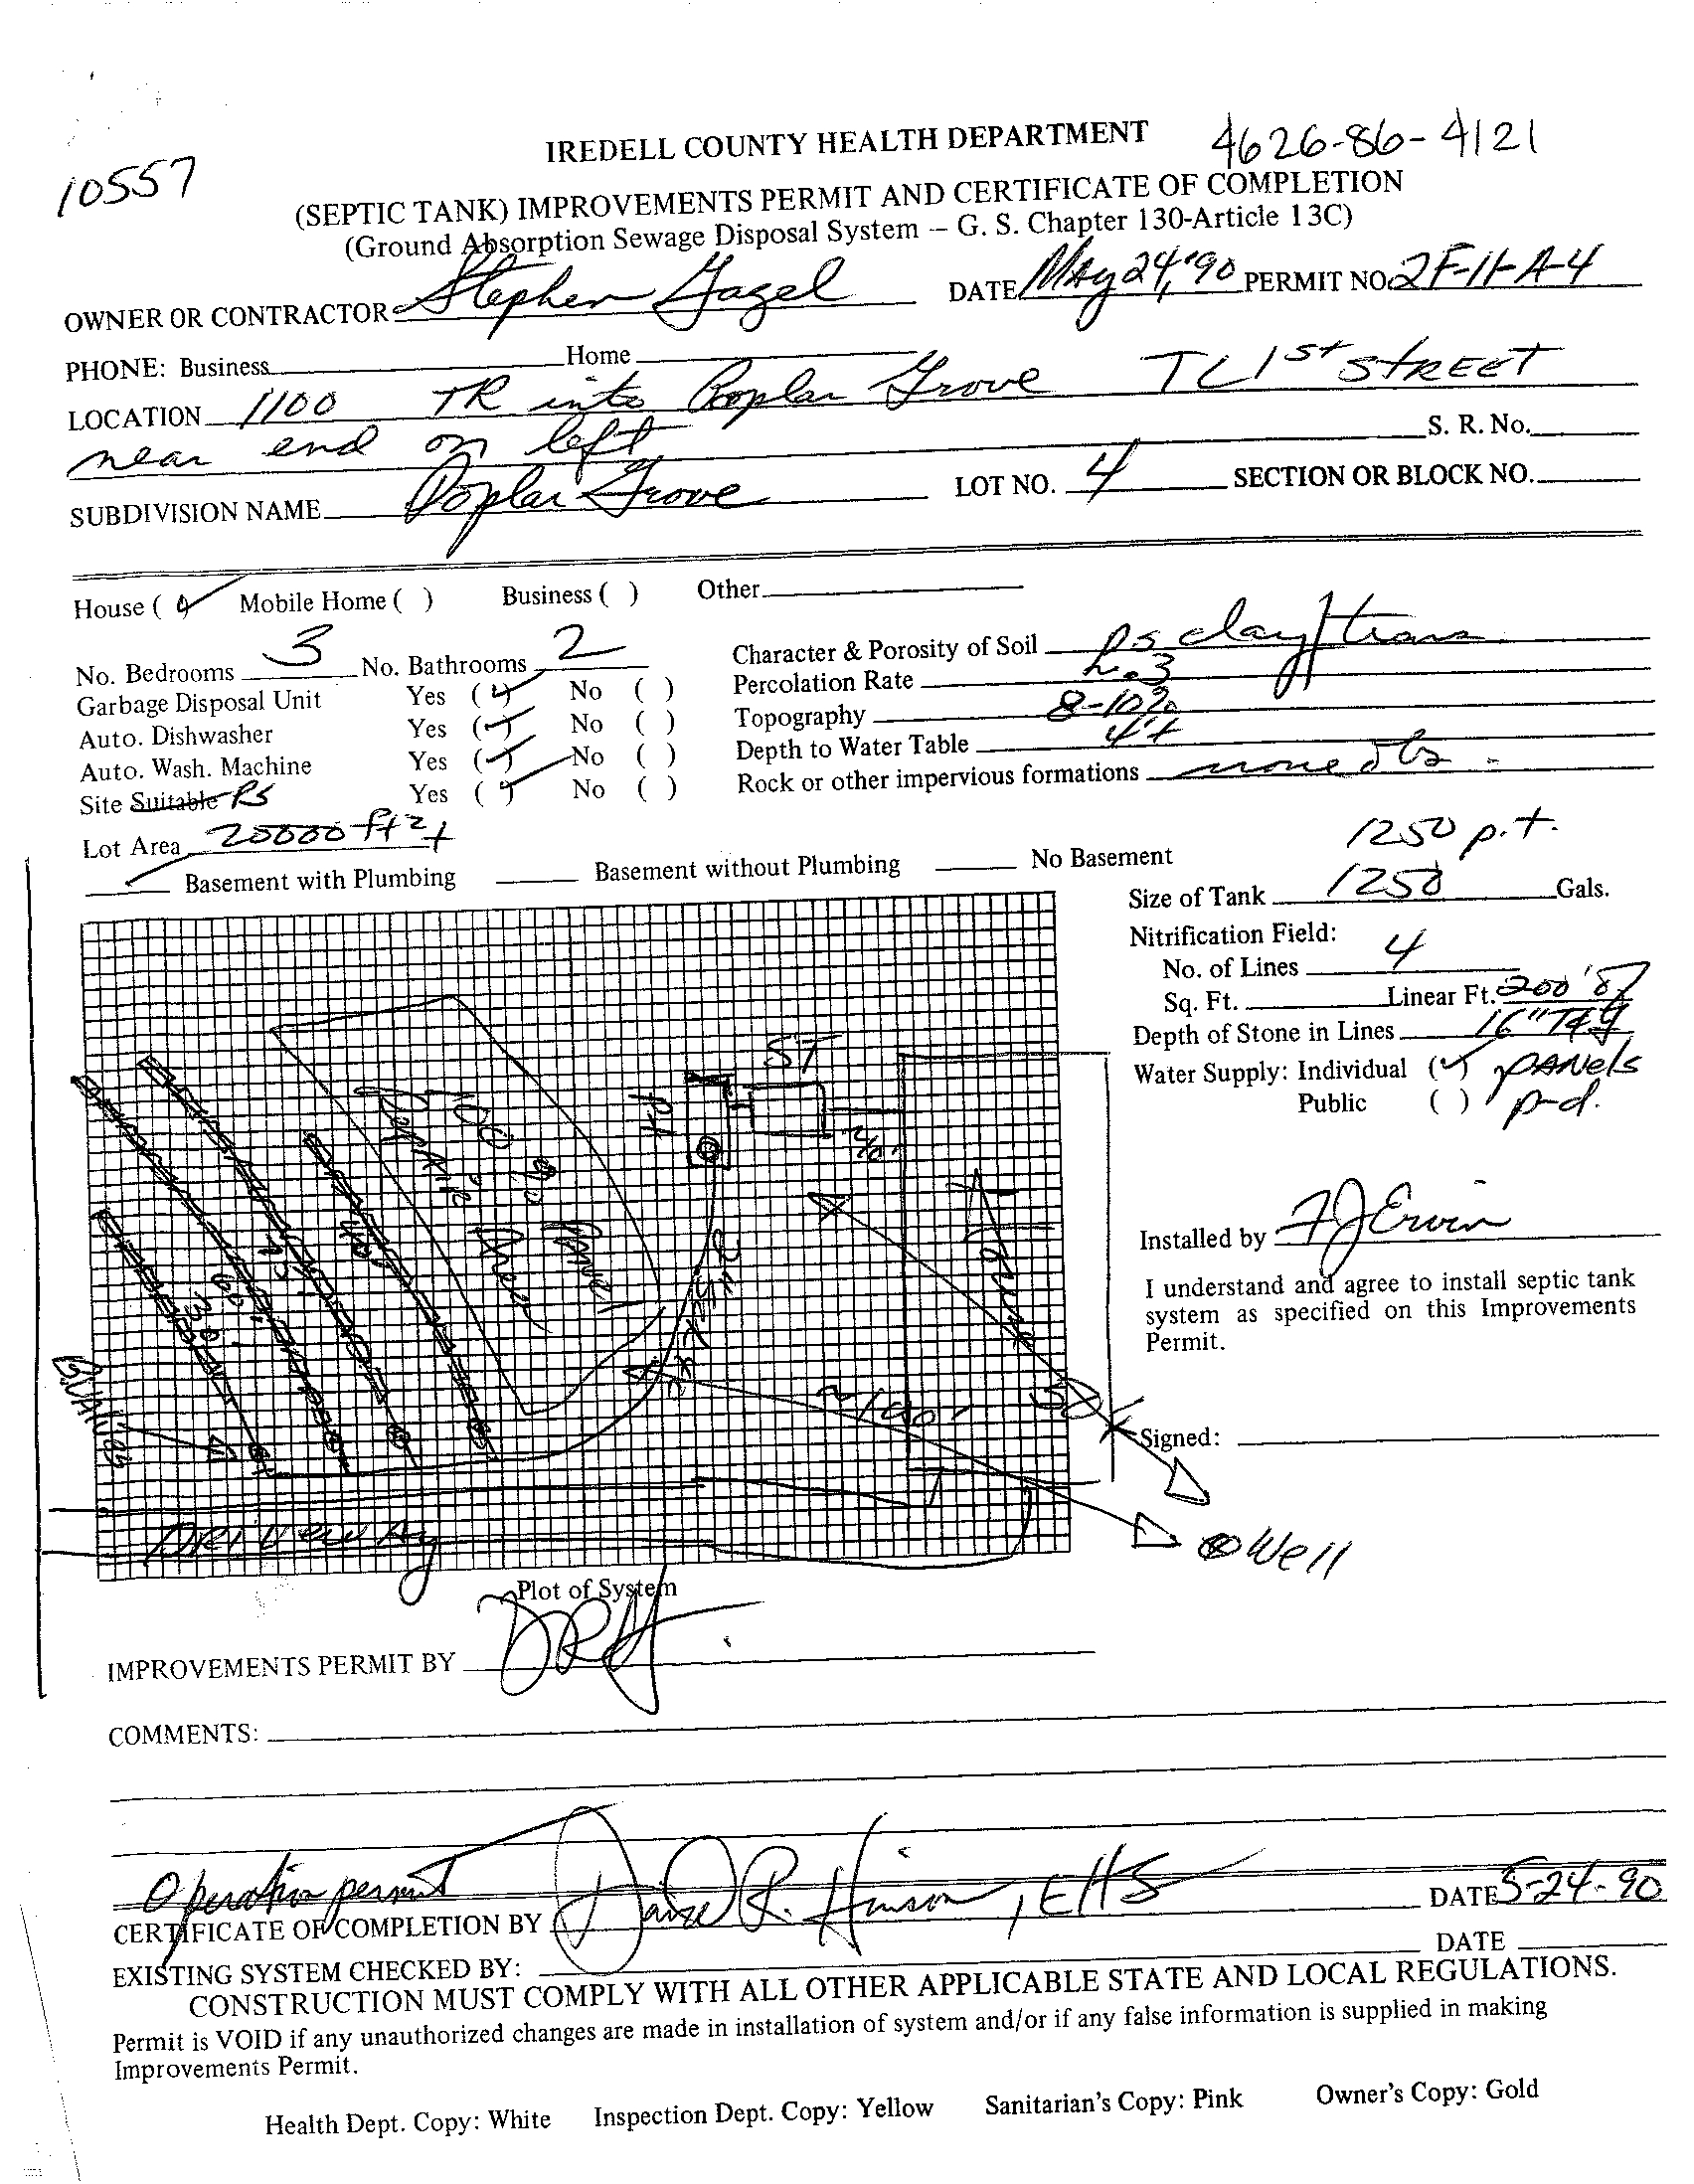 IREDELL COUNTY HEALTH DEPARTMENT 4626-86-4121
10557
(SEPTIC TANK) IMPROVEMENTS PERMIT AND CERTIFICATE OF COMPLETION
(Ground Absorption Sewage Disposal System — G. S. Chapter 130-Article 13C)
OWNER OR CONTRACTOR Stephen DATE May 24, '90 PERMIT NO. 2F-11-A-4
PHONE: Business Home
LOCATION 1100 TR into Poplar Grove TL 1st STREET
near end on left S. R. No.
SUBDIVISION NAME Poplar Grove LOT NO. 4 SECTION OR BLOCK NO.
House ( ) Mobile Home ( ) Business ( ) Other
No. Bedrooms 3 No. Bathrooms 2
Garbage Disposal Unit Yes ( ) No ( )
Auto. Dishwasher Yes ( ) No ( )
Auto. Wash. Machine Yes ( ) No ( )
Site Suitable PS Yes ( ) No ( )
Lot Area 20000 ft2 +
Character & Porosity of Soil P.S clay/trans
Percolation Rate .3
Topography 8-10%
Depth to Water Table 4'+
Rock or other impervious formations none obs
Basement with Plumbing Basement without Plumbing No Basement
1250 p.t.
Size of Tank 1250 Gals.
Nitrification Field:
No. of Lines 4
Sq. Ft. Linear Ft. 200'
Depth of Stone in Lines 16" T&G
Water Supply: Individual ( ) PANels
Public ( ) p-d.
ST
PT
100% Repair Area
40'
45'
60'
30'
House
DRIVEWAY
Well
Installed by FJ Ervin
I understand and agree to install septic tank
system as specified on this Improvements
Permit.
Signed:
Plot of System
IMPROVEMENTS PERMIT BY DRH
COMMENTS:
Operation permit
CERTIFICATE OF COMPLETION BY David R. Hinson, EHS DATE 5-24-90
EXISTING SYSTEM CHECKED BY: DATE
CONSTRUCTION MUST COMPLY WITH ALL OTHER APPLICABLE STATE AND LOCAL REGULATIONS.
Permit is VOID if any unauthorized changes are made in installation of system and/or if any false information is supplied in making
Improvements Permit.
Health Dept. Copy: White Inspection Dept. Copy: Yellow Sanitarian's Copy: Pink Owner's Copy: Gold